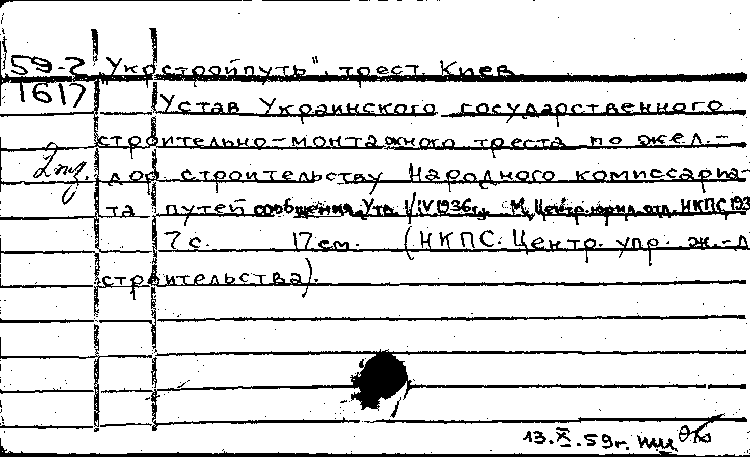 59-2 "Укрстройпуть", трест. Киев
1617 Устав Украинского государственного
строительно-монтажного треста по жел.-
2 экз. дор. строительству Народного комиссариа-
та путей сообщения. Утв. 1/IV 1936 г. М., Центр. юрид. отд. НКПС, 193
7 с. 17 см. (НКПС. Центр. упр. ж.-д
строительства).
13.X.59г.